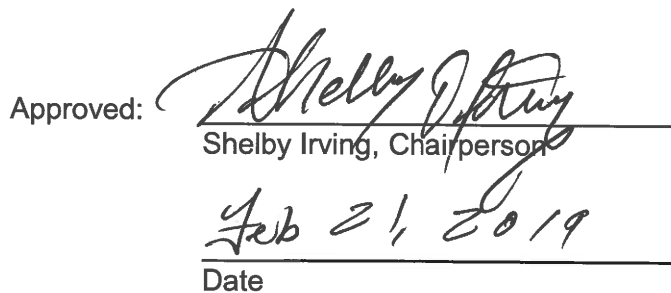 Approved: Shelby D. Irving
Shelby Irving, Chairperson
Feb 21, 2019
Date